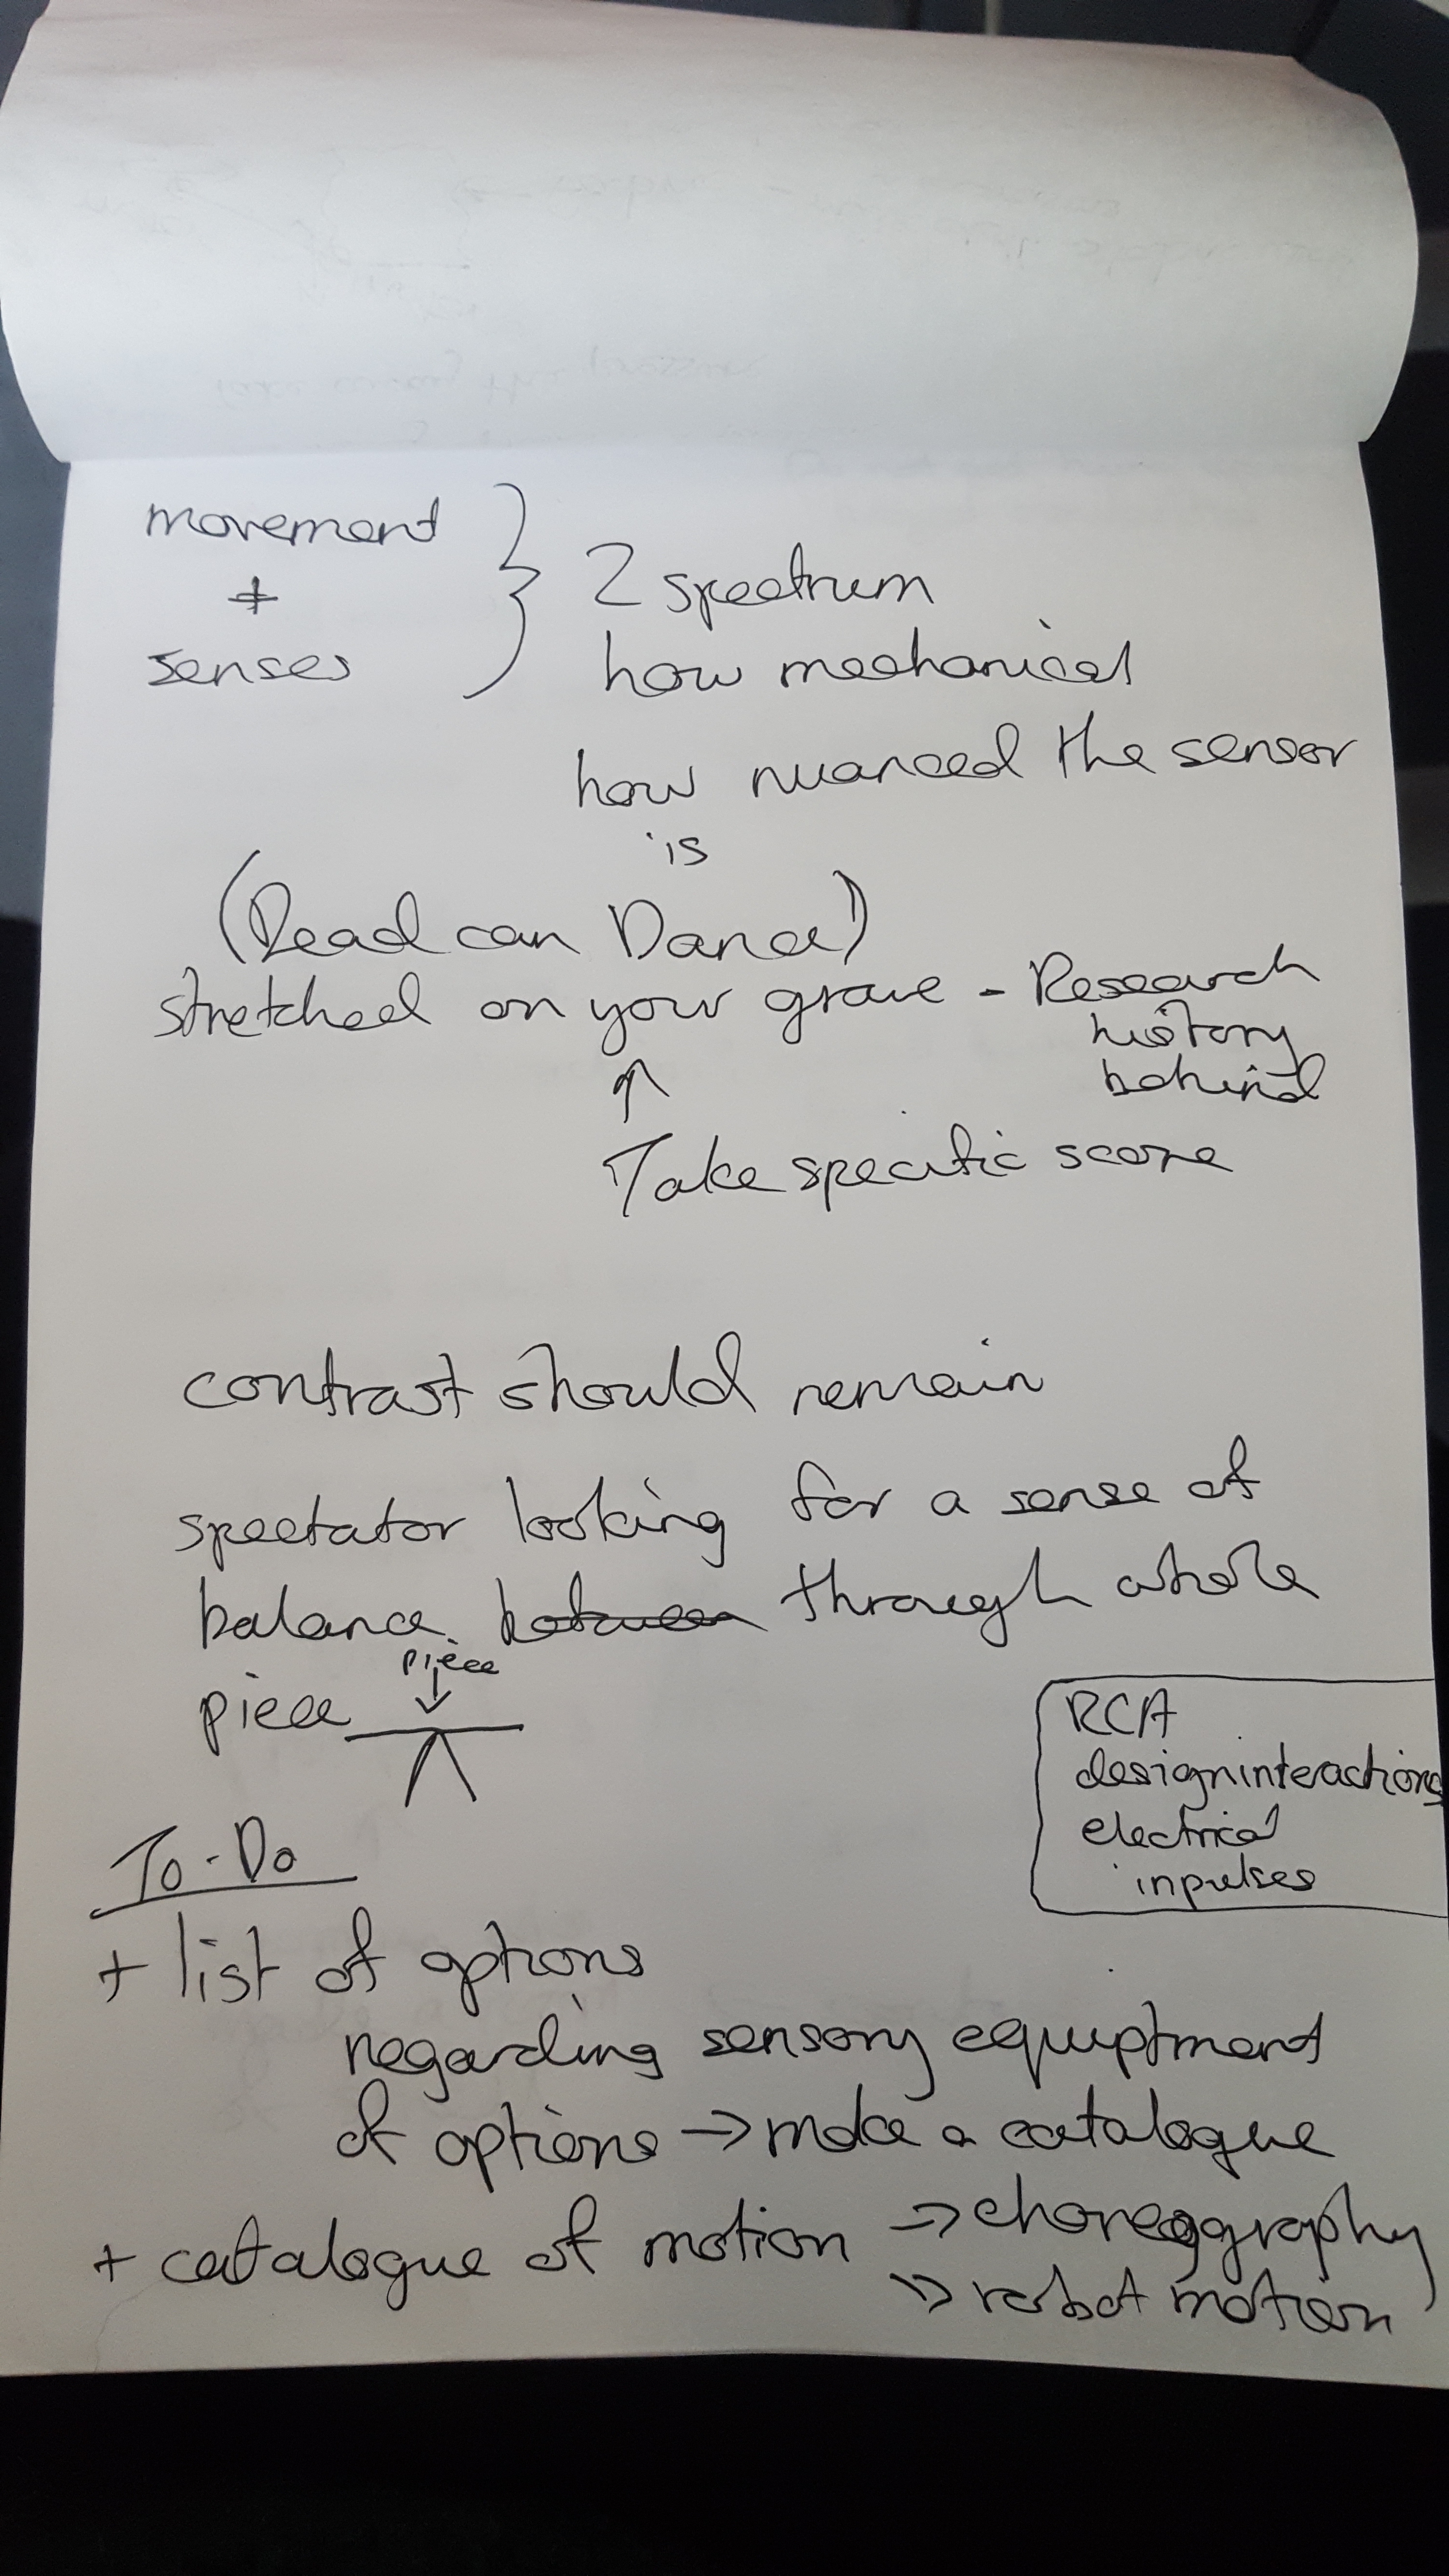 movement
+
senses
} 2 spectrum
how mechanical
how nuanced the sensor
is
(Dead can Dance)
stretched on your grave - Research
history
behind
↑
Take specific score
contrast should remain
spectator looking for a sense of
balance between through whole
piece
piece
↓
RCA
designinteractions
electrical
inpulses
To-Do
+ list of options
regarding sensory equiptment
of options → make a catalogue
+ catalogue of motion → choreography
→ robot motion